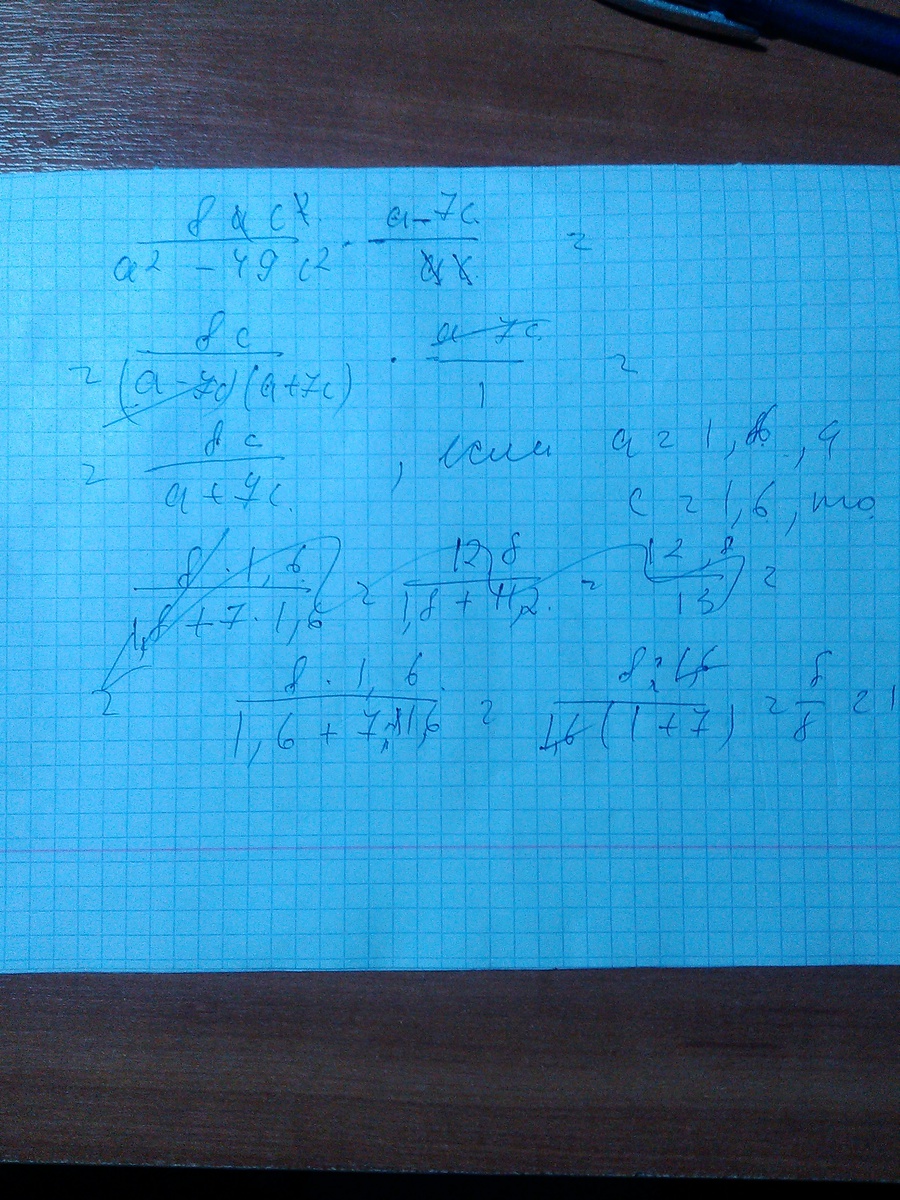 8ac²/(a² - 49c²) · (a - 7c)/(ac) =
= 8c/((a - 7c)(a + 7c)) · (a - 7c)/1 =
= 8c/(a + 7c), если a = 1,6, а
c = 1,6, то
(8 · 1,6)/(1,8 + 7 · 1,6) = 12,8/(1,8 + 11,2) = 12,8/13 =
= (8 · 1,6)/(1,6 + 7 · 1,6) = (8 · 1,6)/(1,6(1 + 7)) = 8/8 = 1